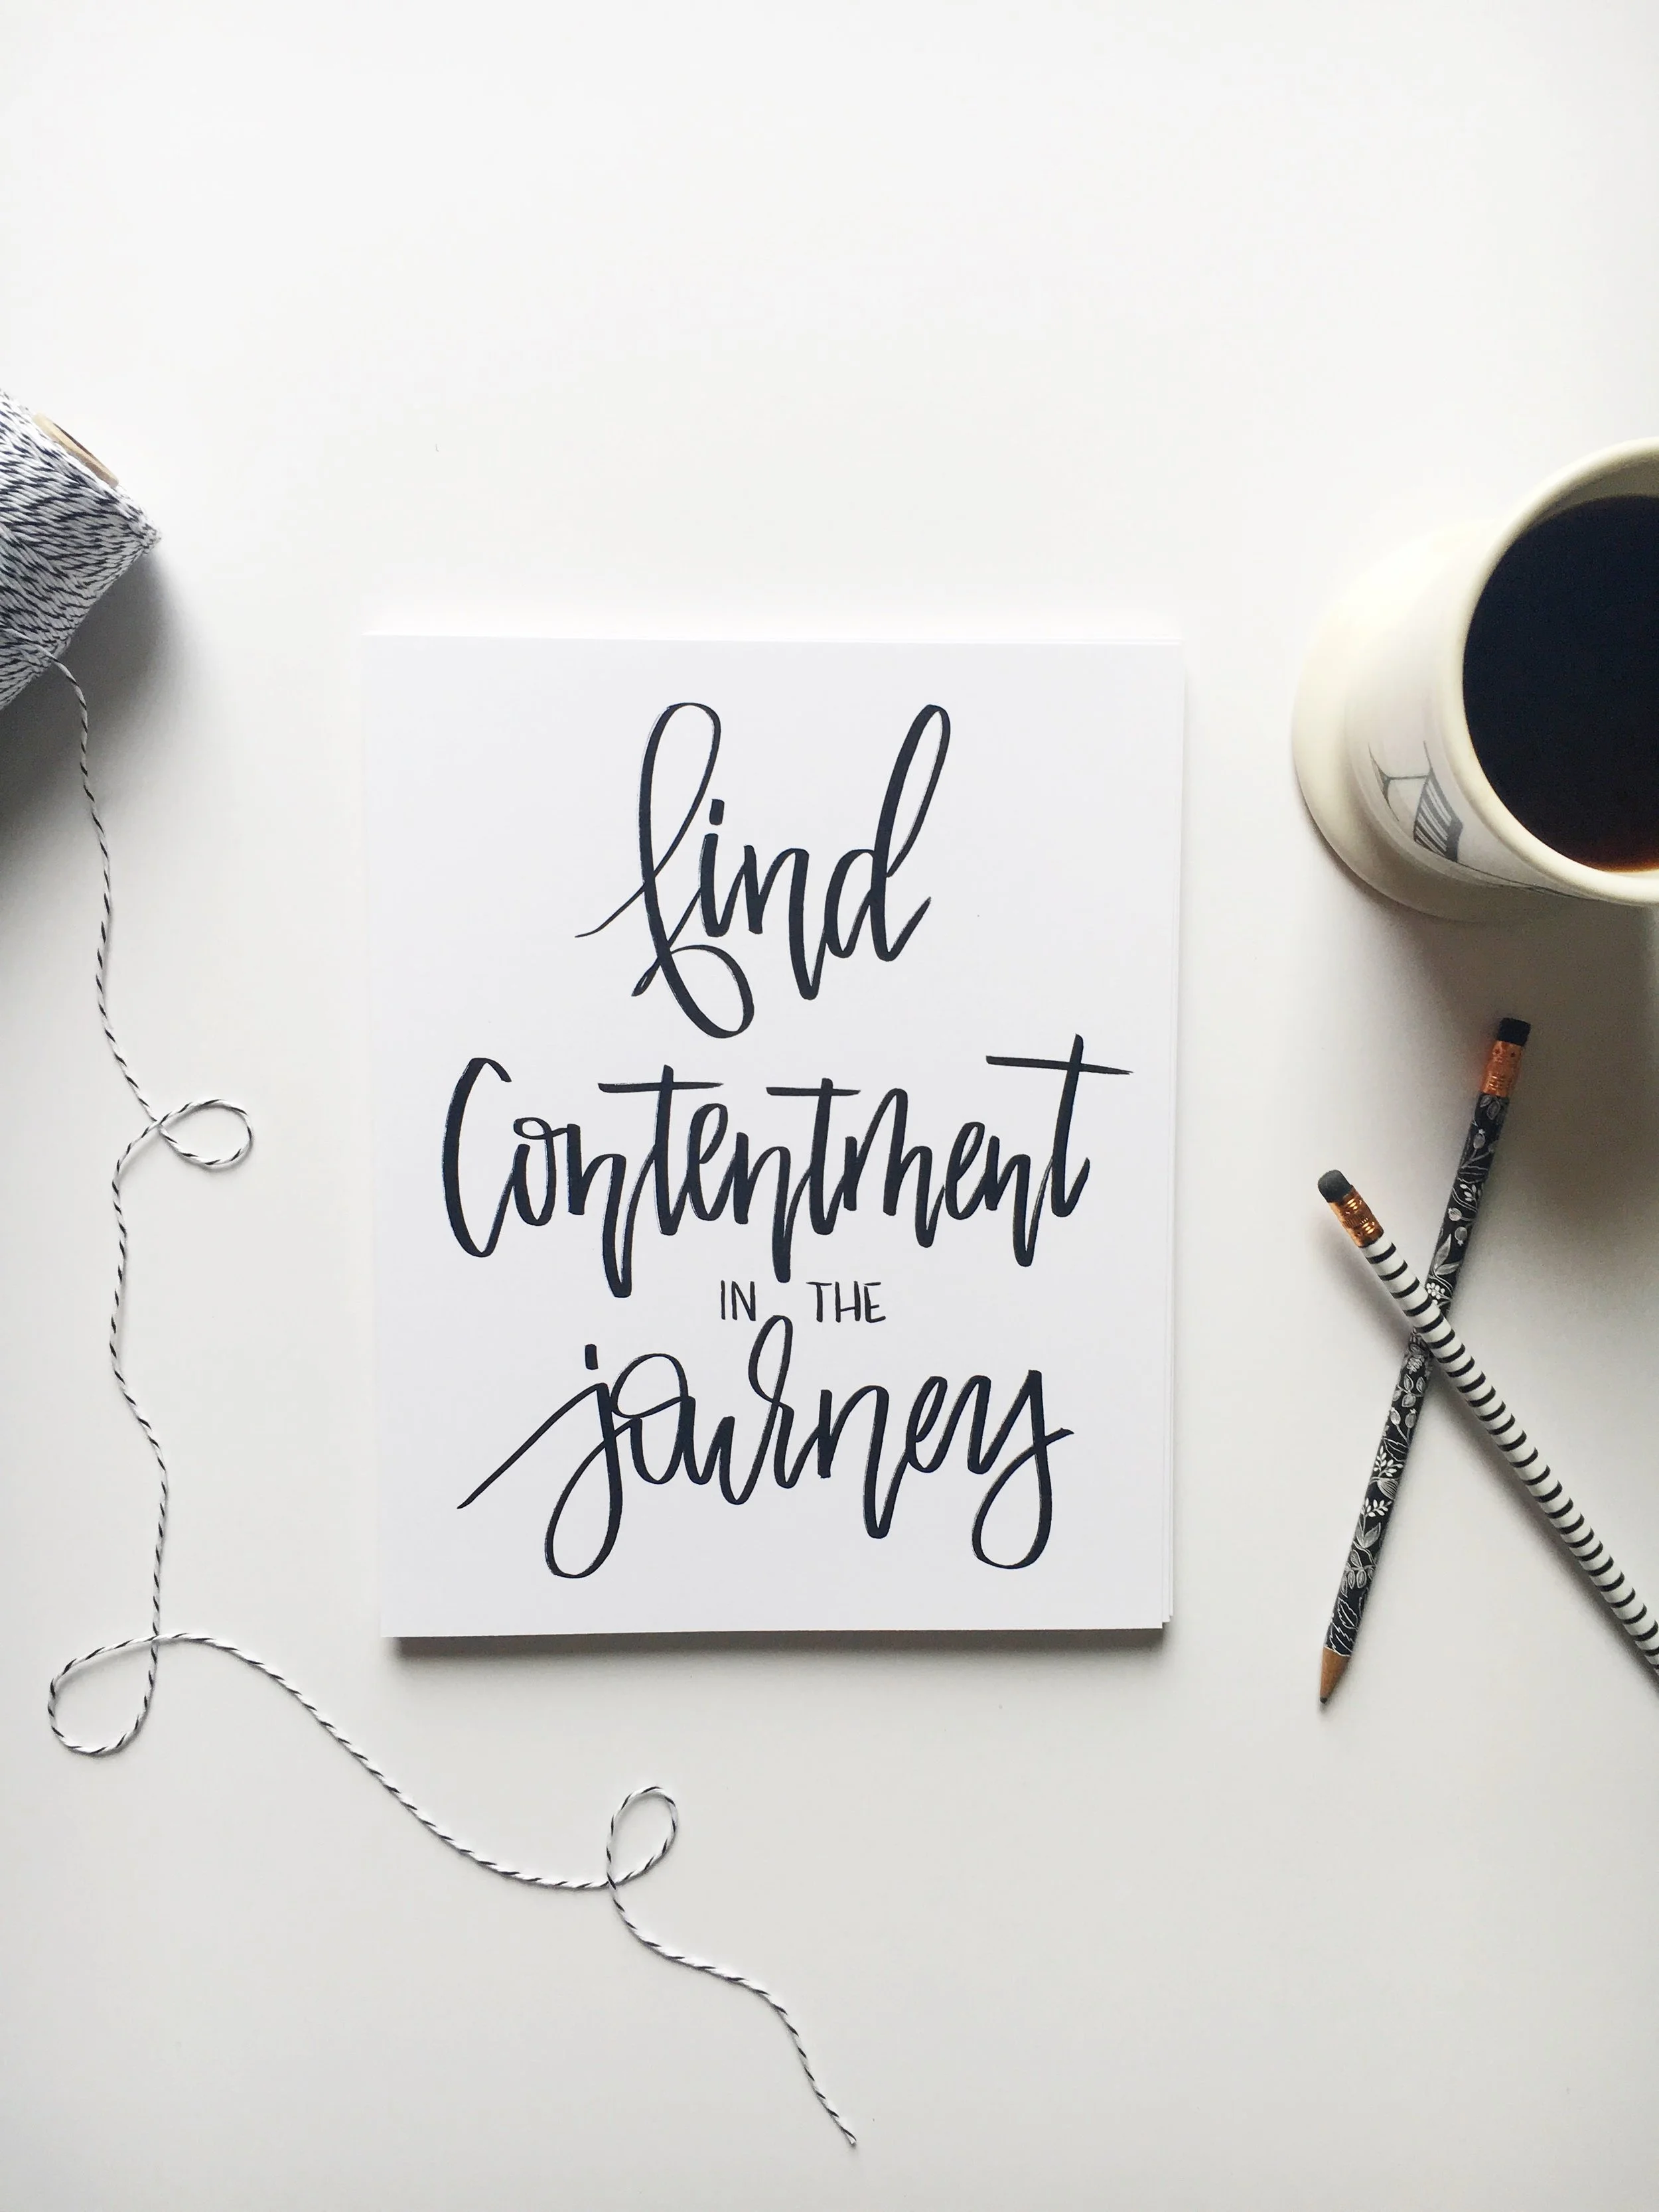 find
Contentment
IN THE
journey